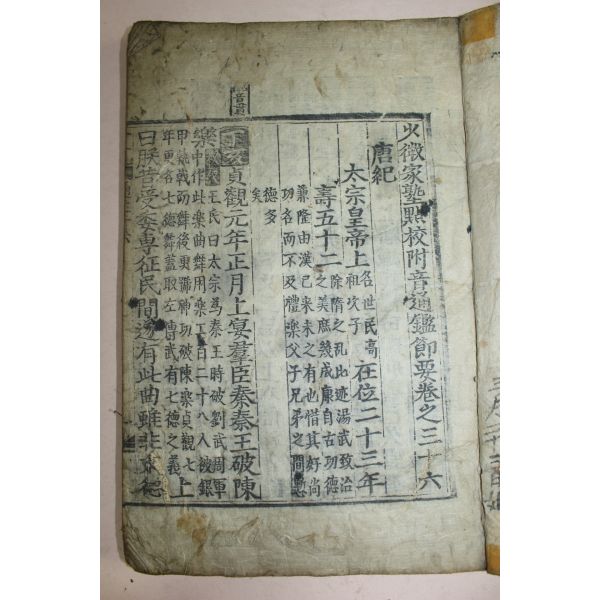 少微家塾點校附音通鑑節要卷之三十六
唐紀
太宗皇帝上 名世民高祖次子 在位二十三年
壽五十二 除隋之亂比迹湯武致治之美庶幾成康自古功德
兼隆由漢已來未之有也惜其好尚功名而不及禮樂父子兄弟之間慙
德多矣
貞觀元年正月上宴羣臣奏秦王破陳
樂 王氏曰太宗爲秦王時破劉武周軍
中作此樂曲舞用樂工百二十八人被銀
甲執戟而舞後更號神功破陳樂貞觀七
年更名七德舞蓋取左傳武有七德之義 上
曰朕昔受委專征民間遂有此曲雖非文德
音薰